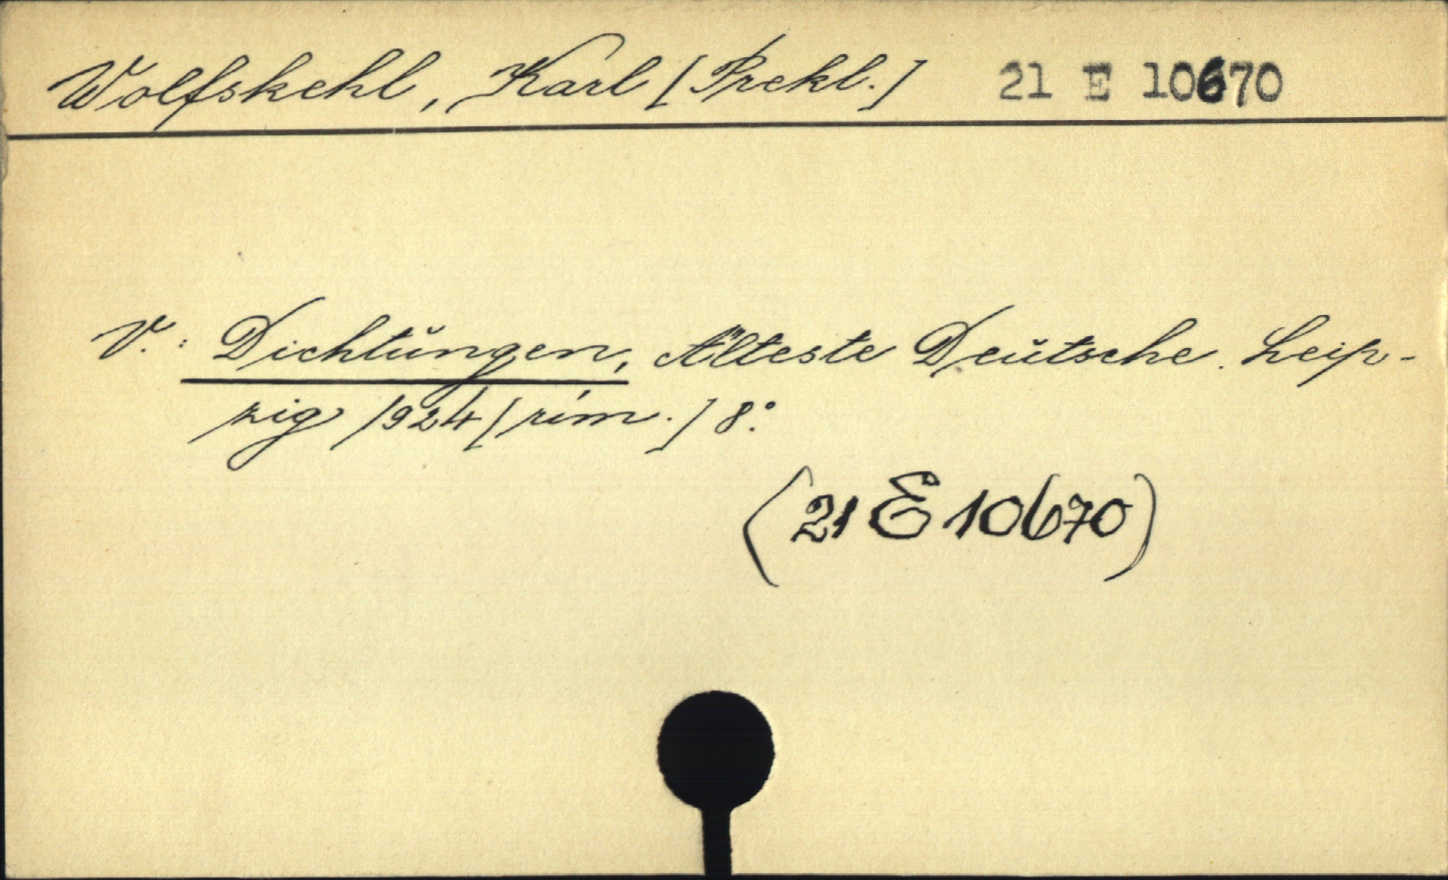 Wolfskehl, Karl [Překl.] 21 E 10670
V.: Dichtungen, Älteste Deutsche. Leip-
zig 1924 [řím.] 8°.
(21 E 10670)